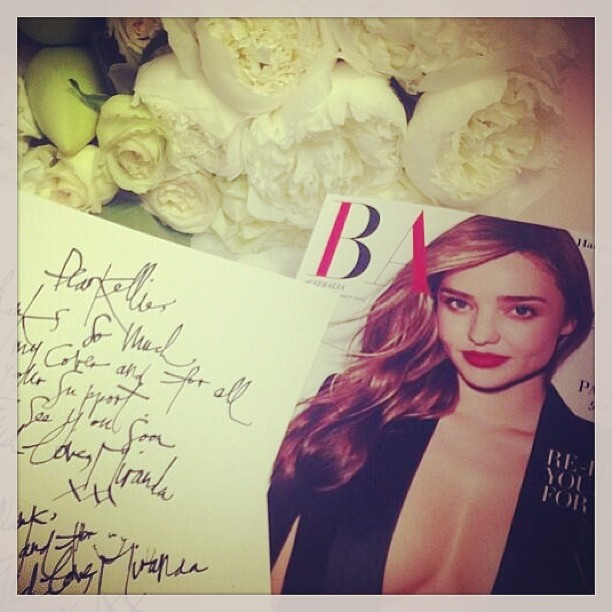 Dear Kellie,
So Much
my Cover and for all
Support
See you Soon
Love, Miranda
xx
and for
Love, Miranda
BA
AUSTRALIA
RE-
YOU
FOR